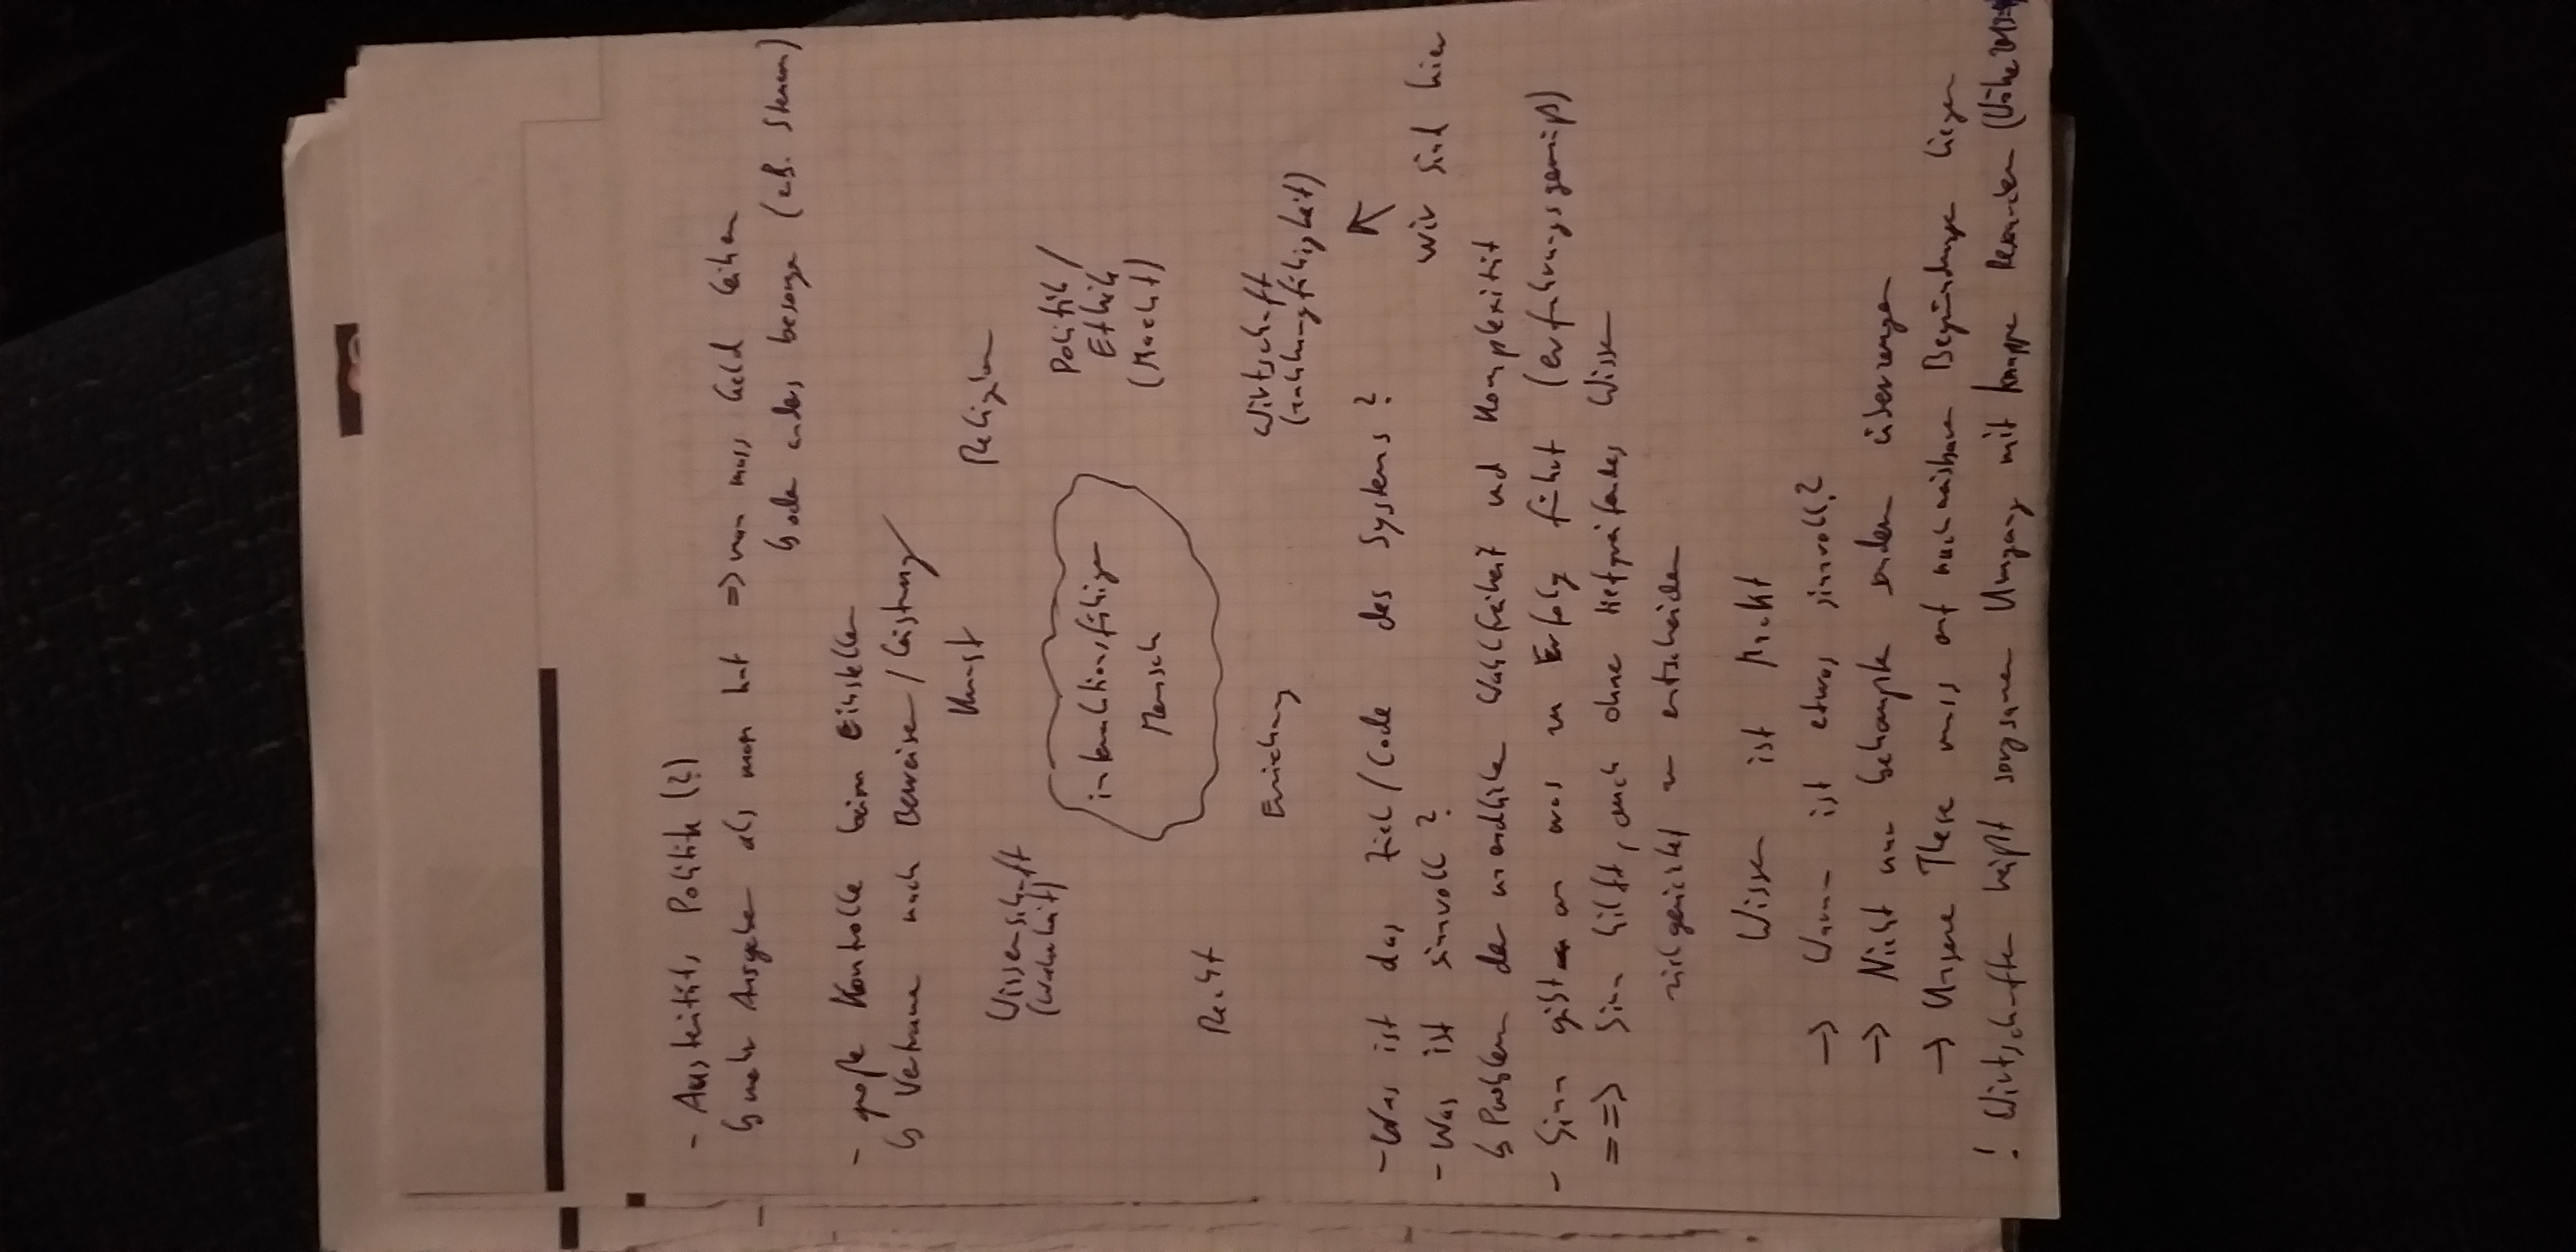 - Austeritäts Politik (?)
↳ mehr Ausgeben als man hat => man muss Geld leihen
↳ oder anders besorgen (z.B. Steuern)
- große Kontrolle beim Einstellen
↳ Vertrauen nach Beweisen / Leistung
Kunst
Religion
Wissenschaft
(Wahrheit)
Politik /
Ethik
(Macht)
interaktionsfähiger
Mensch
Recht
Erziehung
Wirtschaft
(zahlungsfähigkeit)
- Was ist das Ziel / Code des Systems ?
wir sind hier
- Was ist sinnvoll ?
↳ Problem der unendlichen Wahlfreiheit und Komplexität
- Sinn gibt an was zu Erfolg führt (erfahrungsgemäß)
==> Sinn hilft, auch ohne tiefgreifendes Wissen
zielgerichtet zu entscheiden
Wissen ist Macht
-> Warum ist etwas sinnvoll?
-> Nicht nur behaupten sondern überzeugen
-> Unsere These muss auf nachweisbaren Begründungen liegen
! Wirtschaften heißt sorgsamen Umgang mit knappen Resourcen